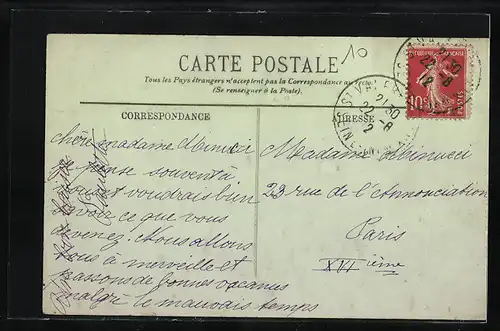 10
CARTE POSTALE
Tous les Pays étrangers n'acceptent pas la Correspondance au
(Se renseigner à la Poste).
CORRESPONDANCE
chère madame
je pense souvent à
vous et voudrais bien
savoir ce que vous
devenez. Nous allons
tous à merveille et
passons de bonnes vacances
malgré le mauvais temps
ADRESSE
Madame
23 rue de l'Annonciation
Paris
XVI ième
ST VALERY
21 30
22 - 8
12
10